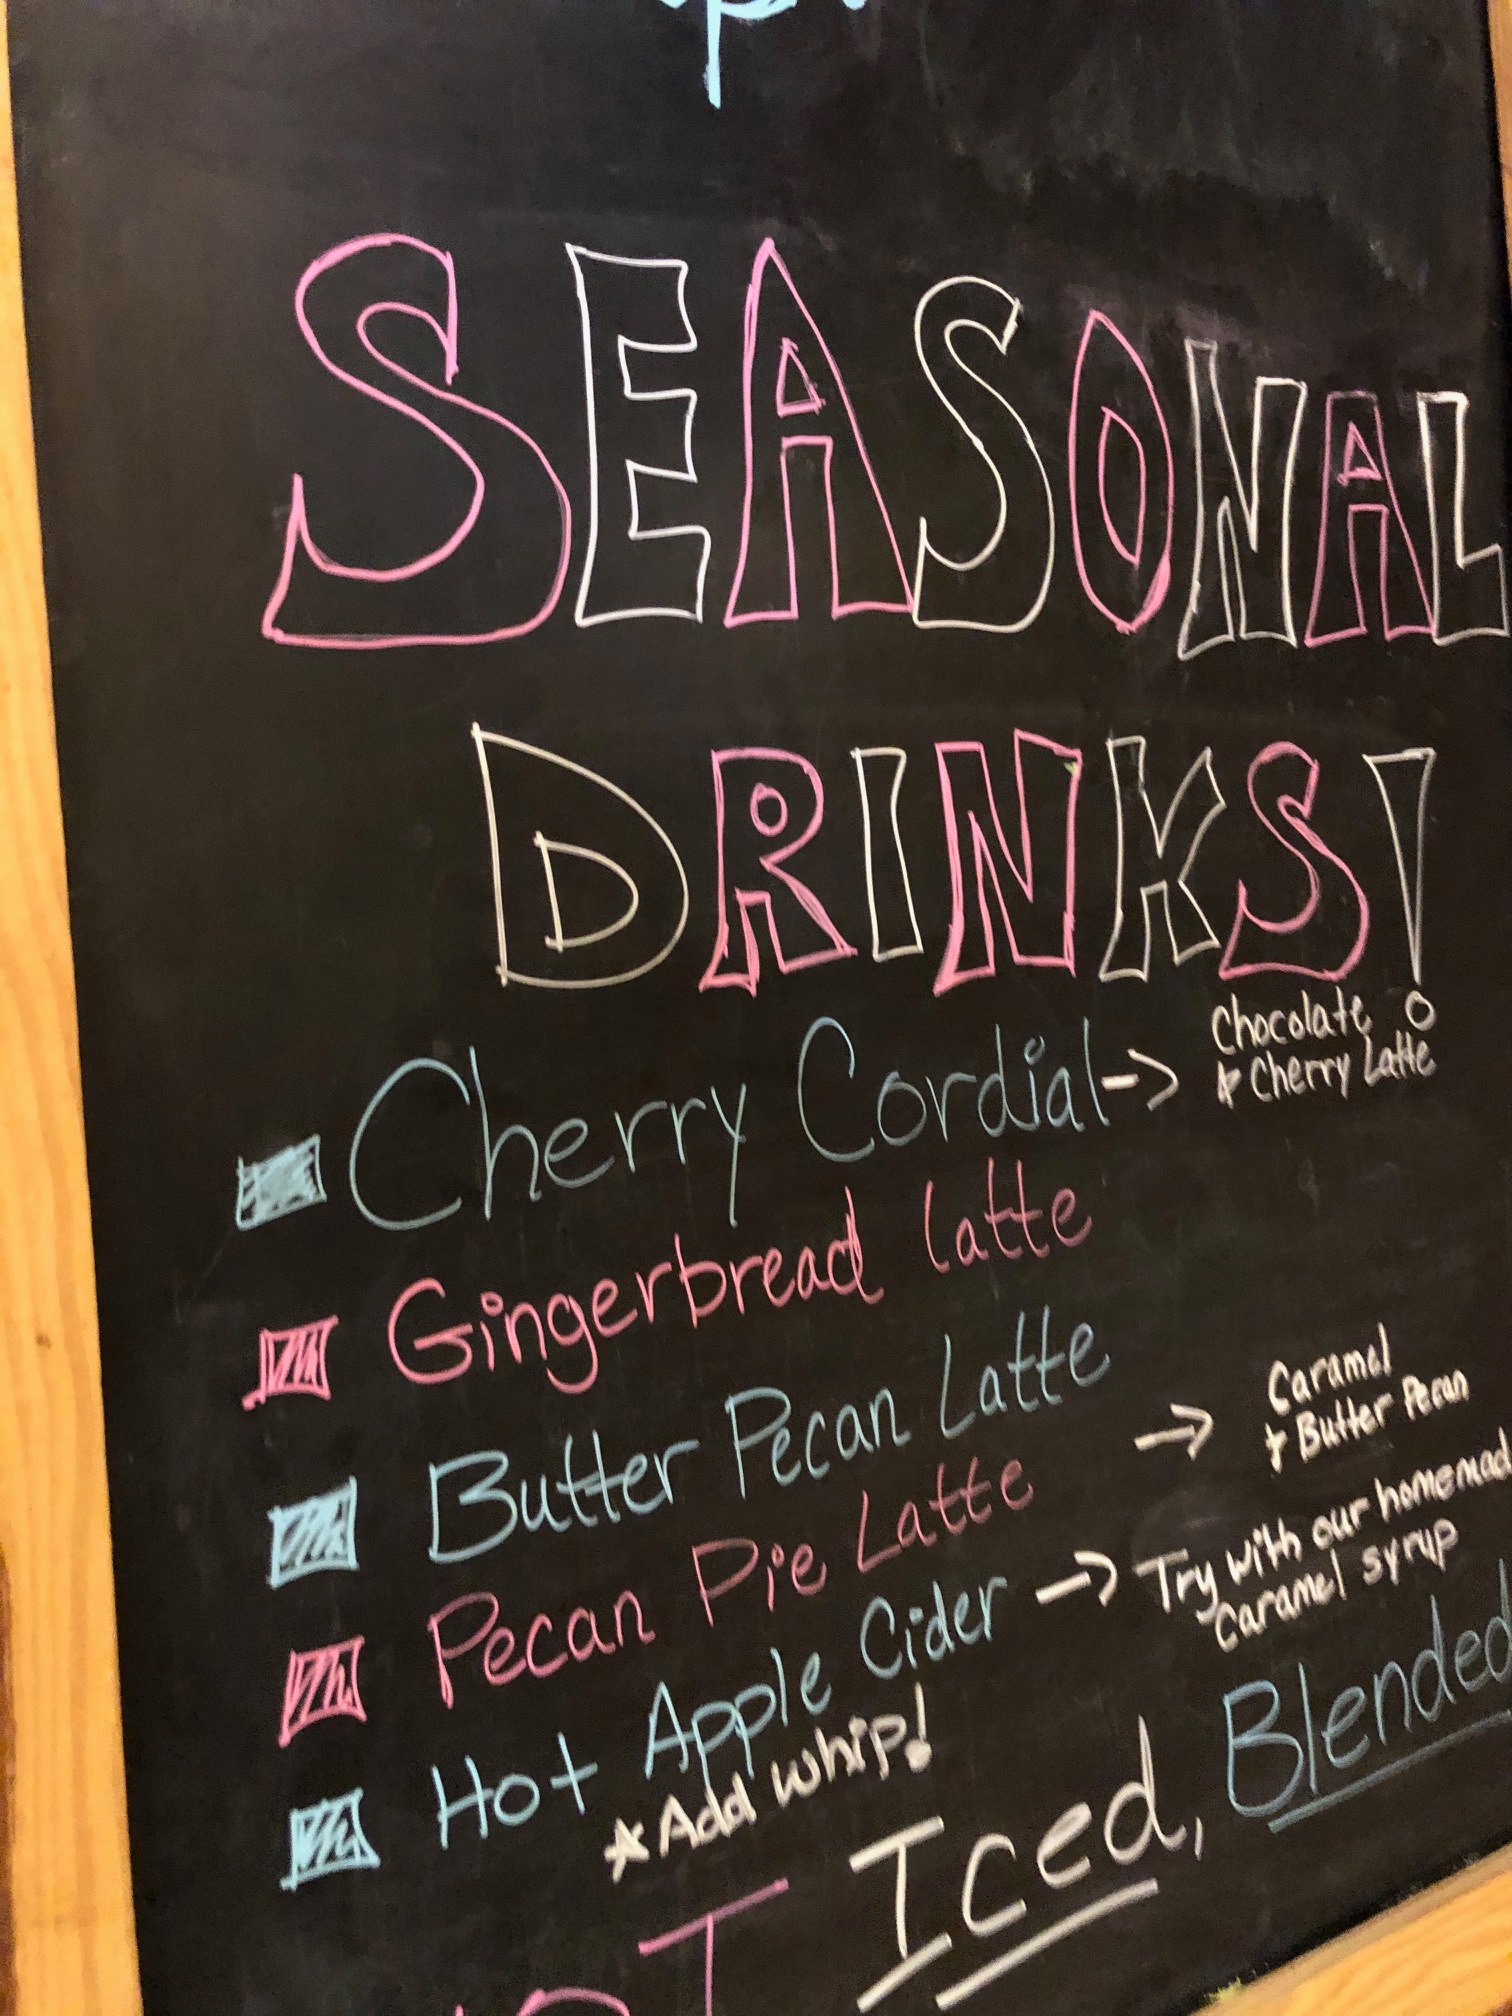 SEASONAL
DRINKS!
Cherry Cordial -> Chocolate
+ Cherry Latte
Gingerbread Latte
Butter Pecan Latte
Pecan Pie Latte -> Caramel
+ Butter Pecan
Hot Apple Cider -> Try with our homemad
Caramel syrup
*Add whip!
Iced, Blended